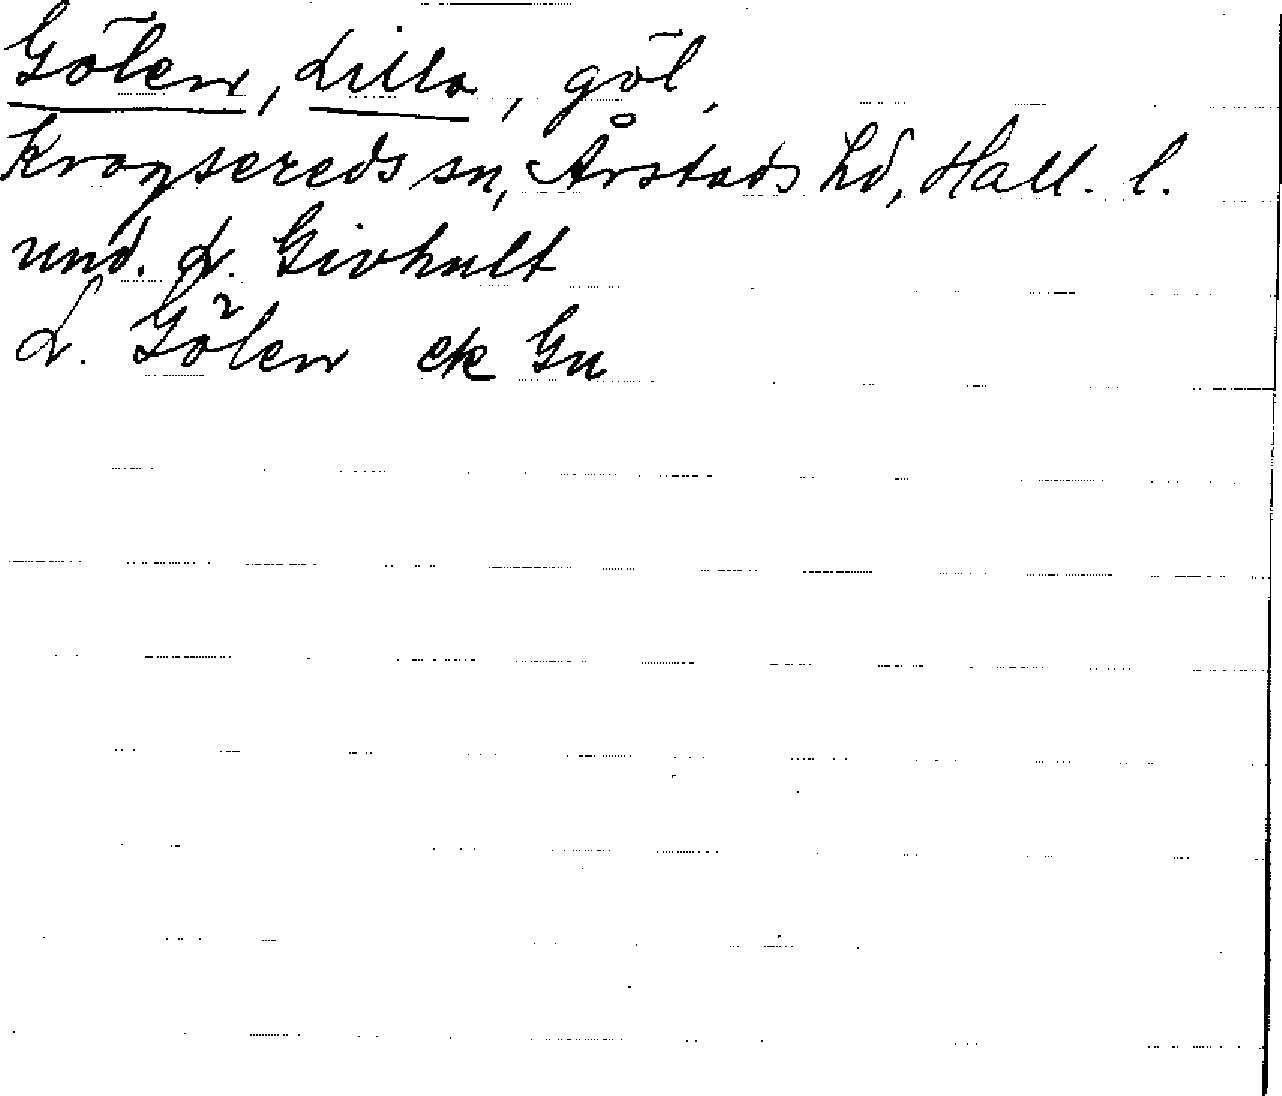 Gölen, Lilla, göl,
Krogsereds sn, Årstads hd, Hall. l.
und. L. Givhult
L. Gölen ek Gu